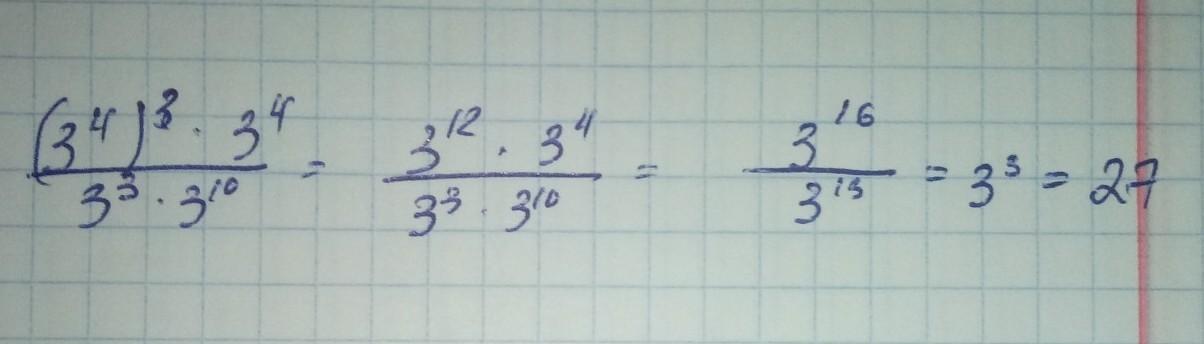 \frac{(3^4)^3 \cdot 3^4}{3^3 \cdot 3^{10}} = \frac{3^{12} \cdot 3^4}{3^3 \cdot 3^{10}} = \frac{3^{16}}{3^{13}} = 3^3 = 27